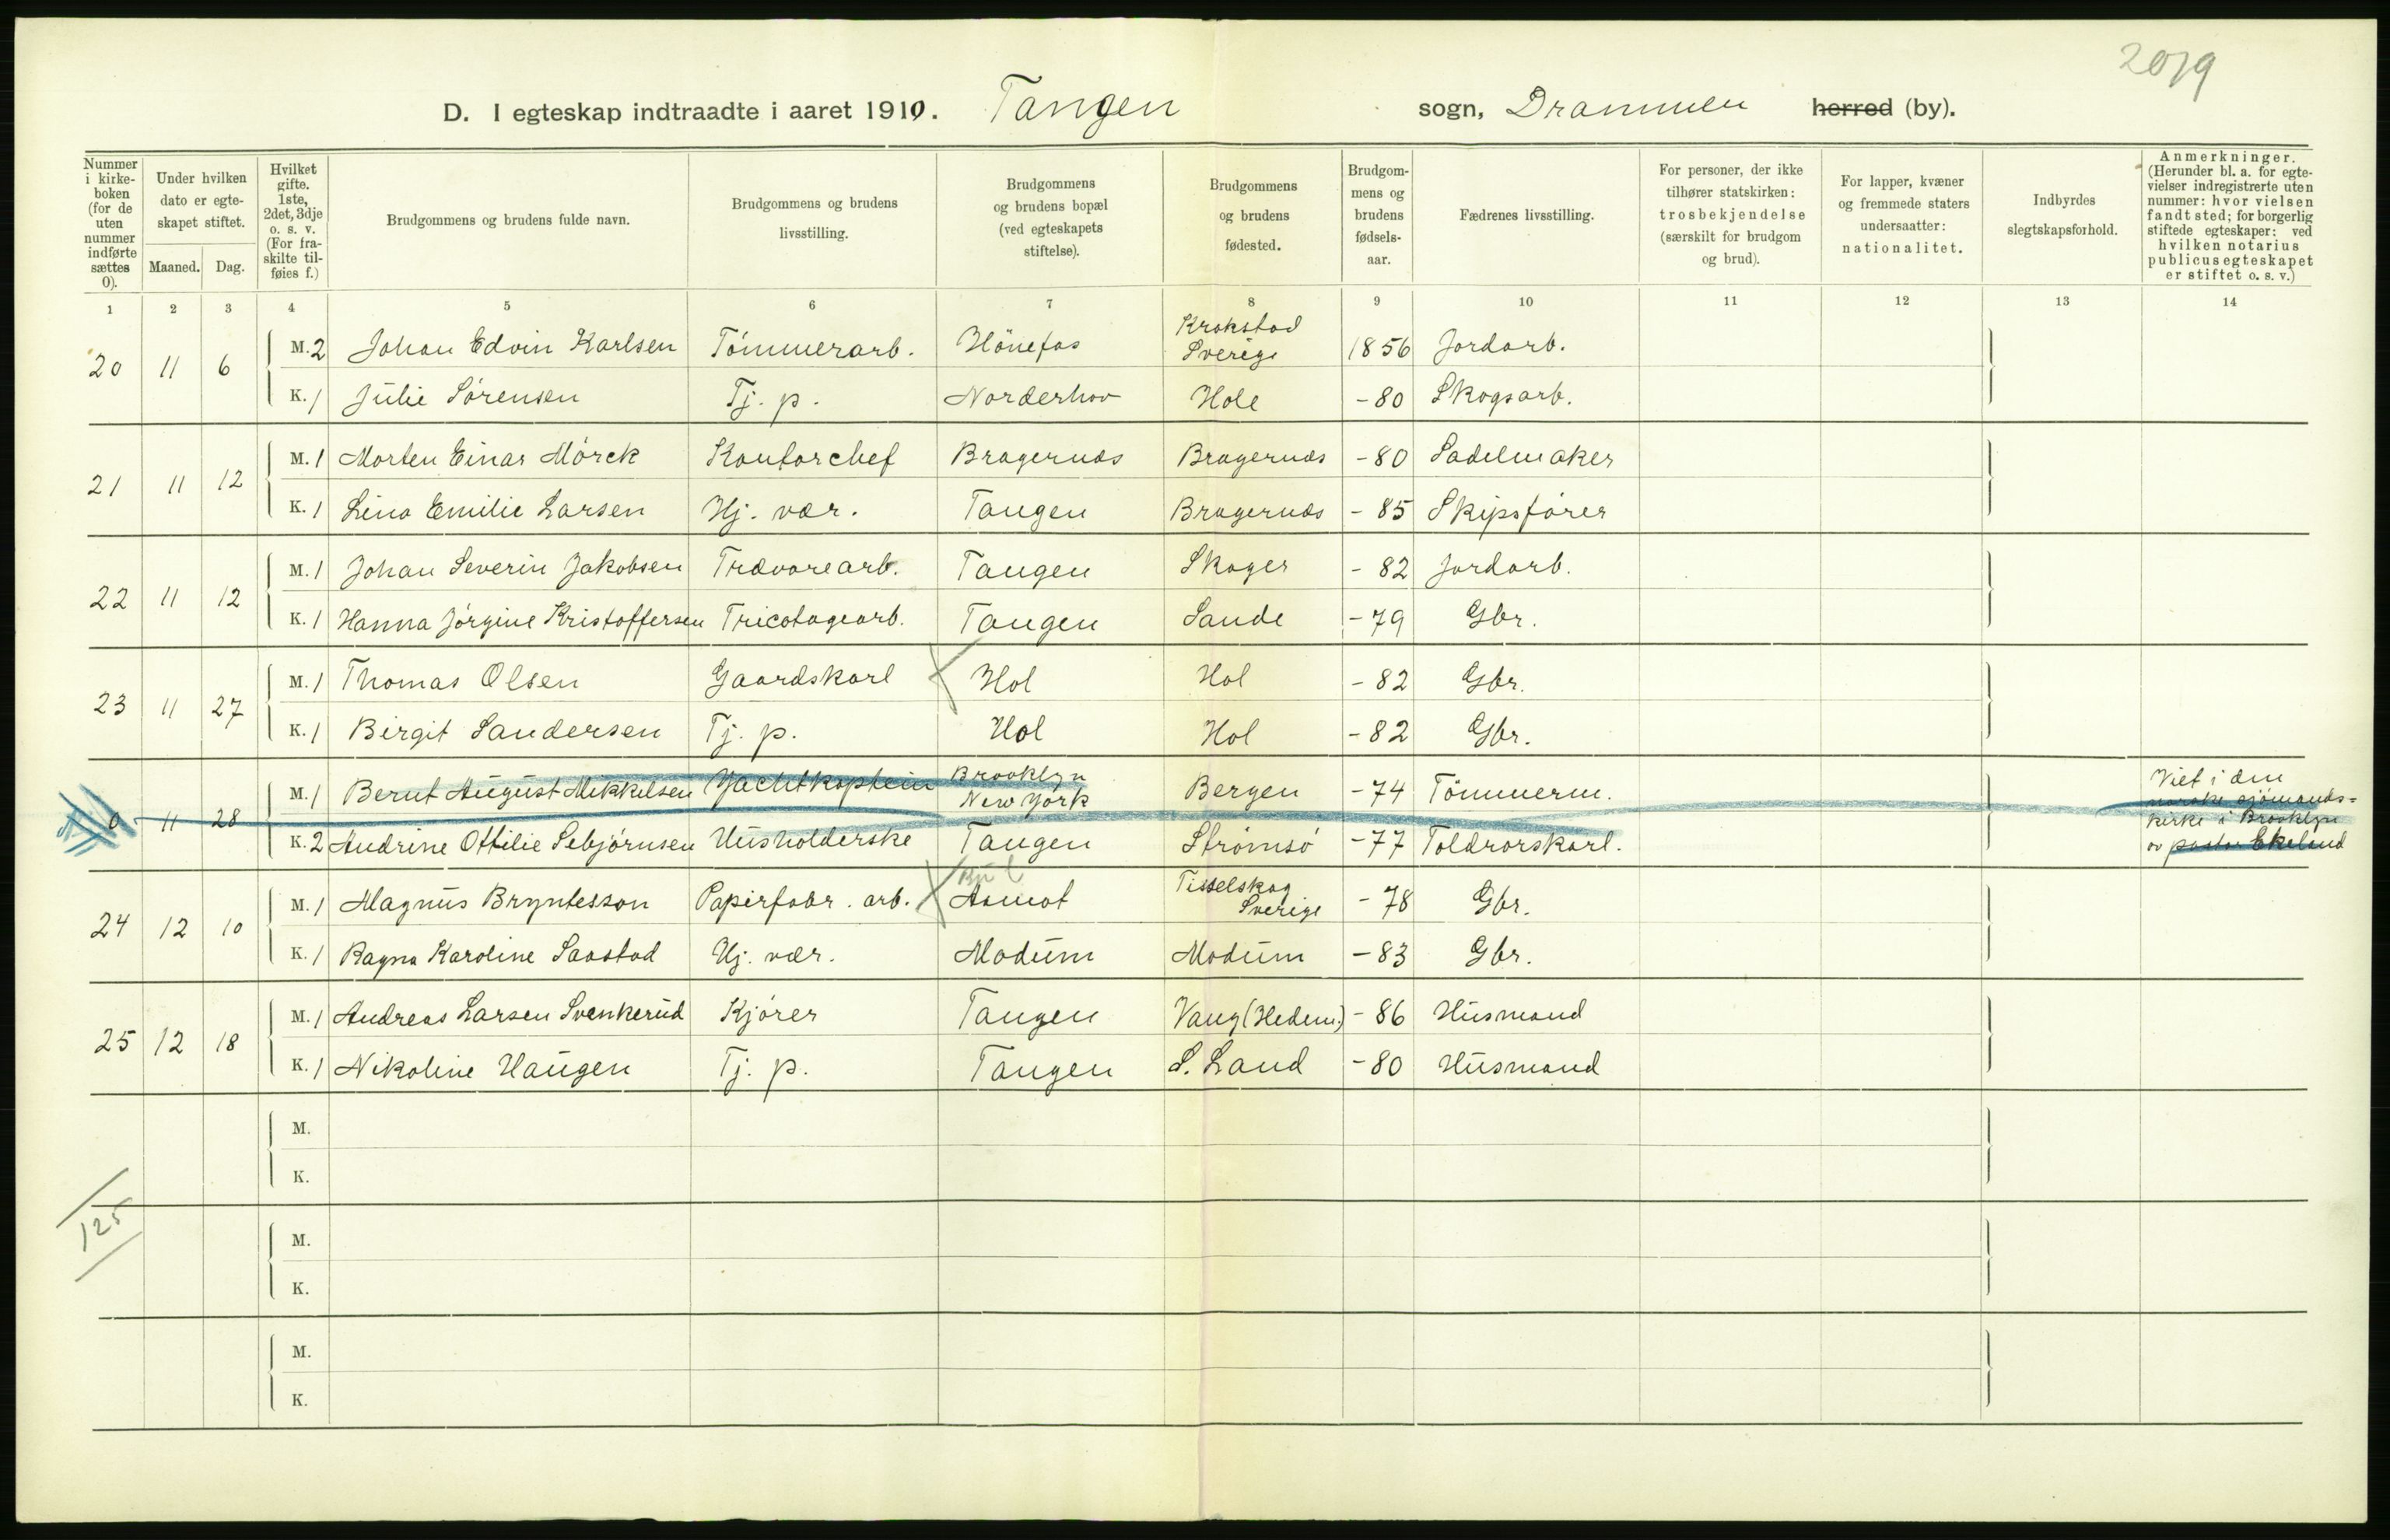 2079
D. I egteskap indtraadte i aaret 1910. Tangen sogn, Drammen herred (by).
Nummer i kirke-boken (for de uten nummer indførte sættes 0).
Under hvilken dato er egte-skapet stiftet.
Maaned. Dag.
Hvilket gifte. 1ste, 2det, 3dje o. s. v. (For fra-skilte til-føies f.)
Brudgommens og brudens fulde navn.
Brudgommens og brudens livsstilling.
Brudgommens og brudens bopæl (ved egteskapets stiftelse).
Brudgommens og brudens fødested.
Brudgom-mens og brudens fødsels-aar.
Fædrenes livsstilling.
For personer, der ikke tilhører statskirken: trosbekjendelse (særskilt for brudgom og brud).
For lapper, kvæner og fremmede staters undersaatter: nationalitet.
Indbyrdes slegtskapsforhold.
Anmerkninger. (Herunder bl. a. for egte-vielser indregistrerte uten nummer: hvor vielsen fandt sted; for borgerlig stiftede egteskaper: ved hvilken notarius publicus egteskapet er stiftet o. s. v.)
1 2 3 4 5 6 7 8 9 10 11 12 13 14
20 11 6 M. 2 Johan Edvin Karlsen Tömmerarb. Hönefos Krokstad Sverige 1856 Jordarb.
K. 1 Julie Sörensen Tj. p. Norderhov Hole -80 Skogsarb.
21 11 12 M. 1 Morten Einar Mörck Kontorchef Bragernæs Bragernæs -80 Sadelmaker
K. 1 Lina Emilie Larsen Hj. vær. Tangen Bragernæs -85 Skipsförer
22 11 12 M. 1 Johan Severin Jakobsen Trævarearb. Tangen Skoger -82 Jordarb.
K. 1 Hanna Jörgine Kristoffersen Tricotagearb. Tangen Sande -79 Gbr.
23 11 27 M. 1 Thomas Olsen Gaardskarl Hol Hol -82 Gbr.
K. 1 Birgit Sandersen Tj. p. Hol Hol -82 Gbr.
0 11 28 M. 1 Bernt August Mikkelsen Yachtkaptein Brooklyn New York Bergen -74 Tömmerm. Viet i den norske sjömands=kirke i Brooklyn av pastor Ekeland
K. 2 Andrine Ottilie Sebjörnsen Husholderske Tangen Strömsö -77 Toldrorskarl.
24 12 10 M. 1 Magnus Bryntesson Papirfabr. arb. Aamot Tisselskog Sverige -78 Gbr.
K. 1 Ragna Karoline Saastad Hj. vær. Modum Modum -83 Gbr.
25 12 18 M. 1 Andreas Larsen Svenkerud Kjörer Tangen Vang (Hedem.) -86 Husmand
K. 1 Nikoline Haugen Tj. p. Tangen S. Land -80 Husmand
M.
K.
125
M.
K.
M.
K.